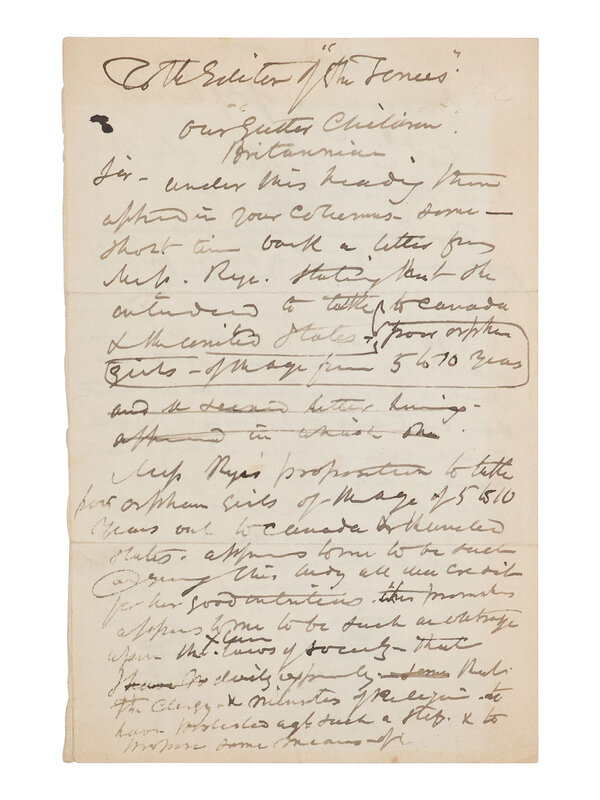 To the Editor of "The Times".
"Our Gutter Children".
Britannia
Sir - under this heading there
appeared in your columns - some -
short time back a letter from
Miss. Rye. stating that she
intended to take to Canada
& the United States - poor orphan
girls - of the age from 5 to 10 years
and a second letter having -
appeared in which she.
Miss Rye's proposition to take
poor orphan girls of the age of 5 to 10
years out to Canada & the United
States. appears to me to be such
and giving this lady all due credit
for her good intentions. this
appears to me to be such an outrage
upon the laws of society - that
I
the Clergy - & ministers of Religion - to
have protested agst such a step. & to
propose some means of